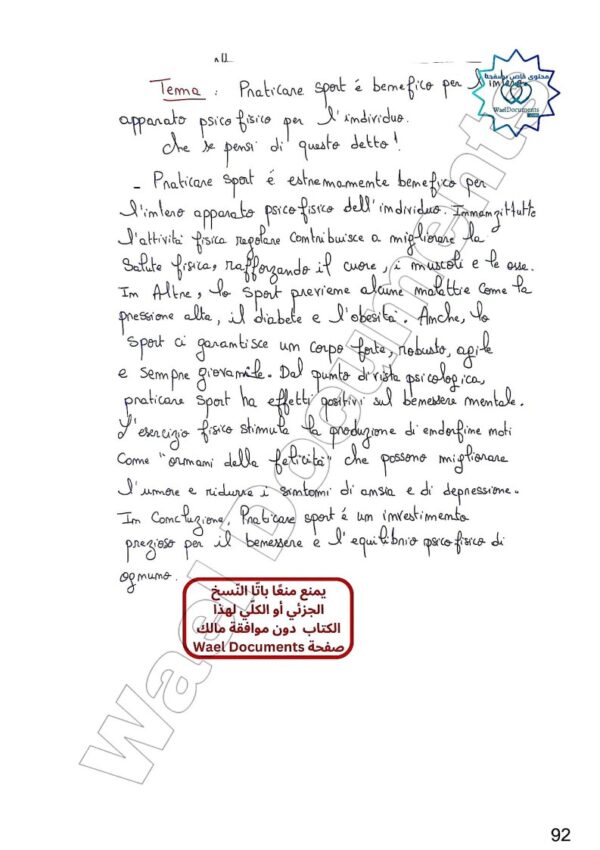 محتوى خاص بصفحة
WaelDocuments
.com
Tema : Praticare sport é benefico per l'intero
apparato psicofisico per l'individuo.
che se pensi di questo detto!
- Praticare sport é estremamente benefico per
l'intero apparato psicofisico dell'individuo. Immanzittutto
l'attività fisica regolare contribuisce a migliorare la
Salute fisica, rafforzando il cuore, i muscoli e le osse.
Im Altre, lo sport previene alcune malattie come la
pressione alta, il diabete e l'obesità. Anche, lo
sport ci garantisce un corpo forte, robusto, agile
e sempre giovanile. Dal punto di vista psicologica,
praticare sport ha effetti positivi sul benessere mentale.
L'esercizio fisico stimula la produzione di endorfine noti
Come "ormani della felicità" che possono migliorare
l'umore e ridurre i sintomi di ansia e di depressione.
In Conclusione, Praticare sport é un investimento
prezioso per il benessere e l'equilibrio psicofisico di
ognuno.
يمنع منعًا باتًا النّسخ
الجزئي أو الكلّي لهذا
الكتاب دون موافقة مالك
صفحة Wael Documents
Wael Documents
92